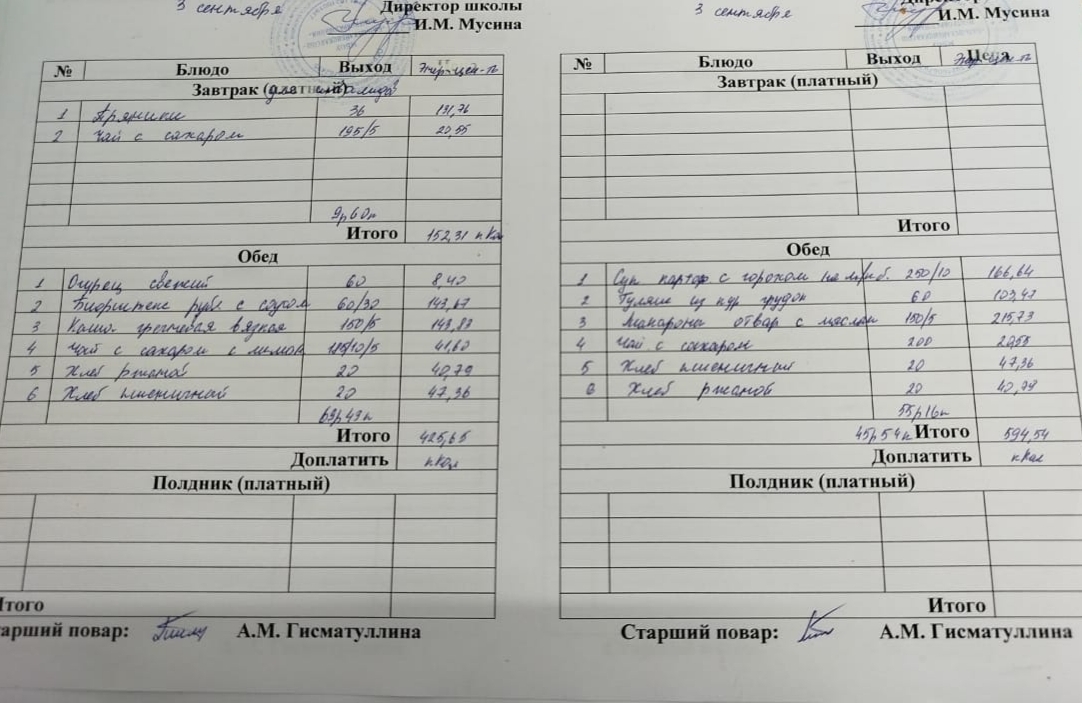 3 сентября
Директор школы
И.М. Мусина
№ Блюдо Выход Энер-цен-ть
Завтрак (платный)
1 Пряники 36 131,76
2 Чай с сахаром 195/5 20,55
9р60к
Итого 152,31 кКал
Обед
1 Огурец свежий 60 8,40
2 Бифштекс рубл с соусом 60/30 143,67
3 Каша гречневая вязкая 150/5 143,83
4 Чай с сахаром с лимон 185/10/5 41,60
5 Хлеб ржаной 20 40,79
6 Хлеб пшеничный 20 47,36
69р43к
Итого 425,65
Доплатить кКал
Полдник (платный)
Итого
тарший повар: А.М. Гисматуллина
3 сентября
И.М. Мусина
№ Блюдо Выход Цена
Завтрак (платный)
Итого
Обед
1 Суп картоф с горохом на м/к б. 250/10 166,64
2 Гуляш из кур грудок 60 103,47
3 Макароны отвар с маслом 150/5 215,73
4 Чай с сахаром 200 20,55
5 Хлеб пшеничный 20 47,36
6 Хлеб ржаной 20 40,79
55р16к
45р54к Итого 594,54
Доплатить кКал
Полдник (платный)
Итого
Старший повар: А.М. Гисматуллина